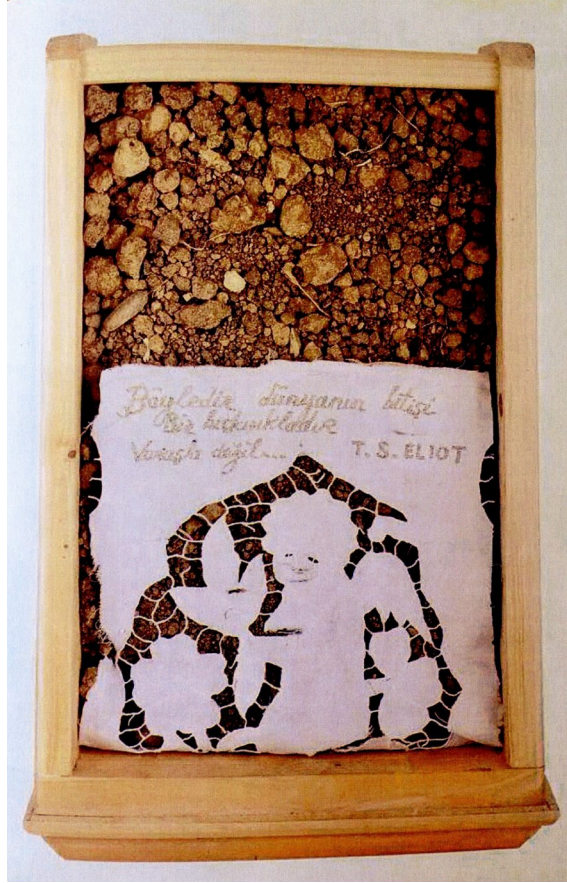 Böyledir dünyanın bitişi
Bir hıçkırıkladır
Vuruşla değil.... T. S. ELIOT